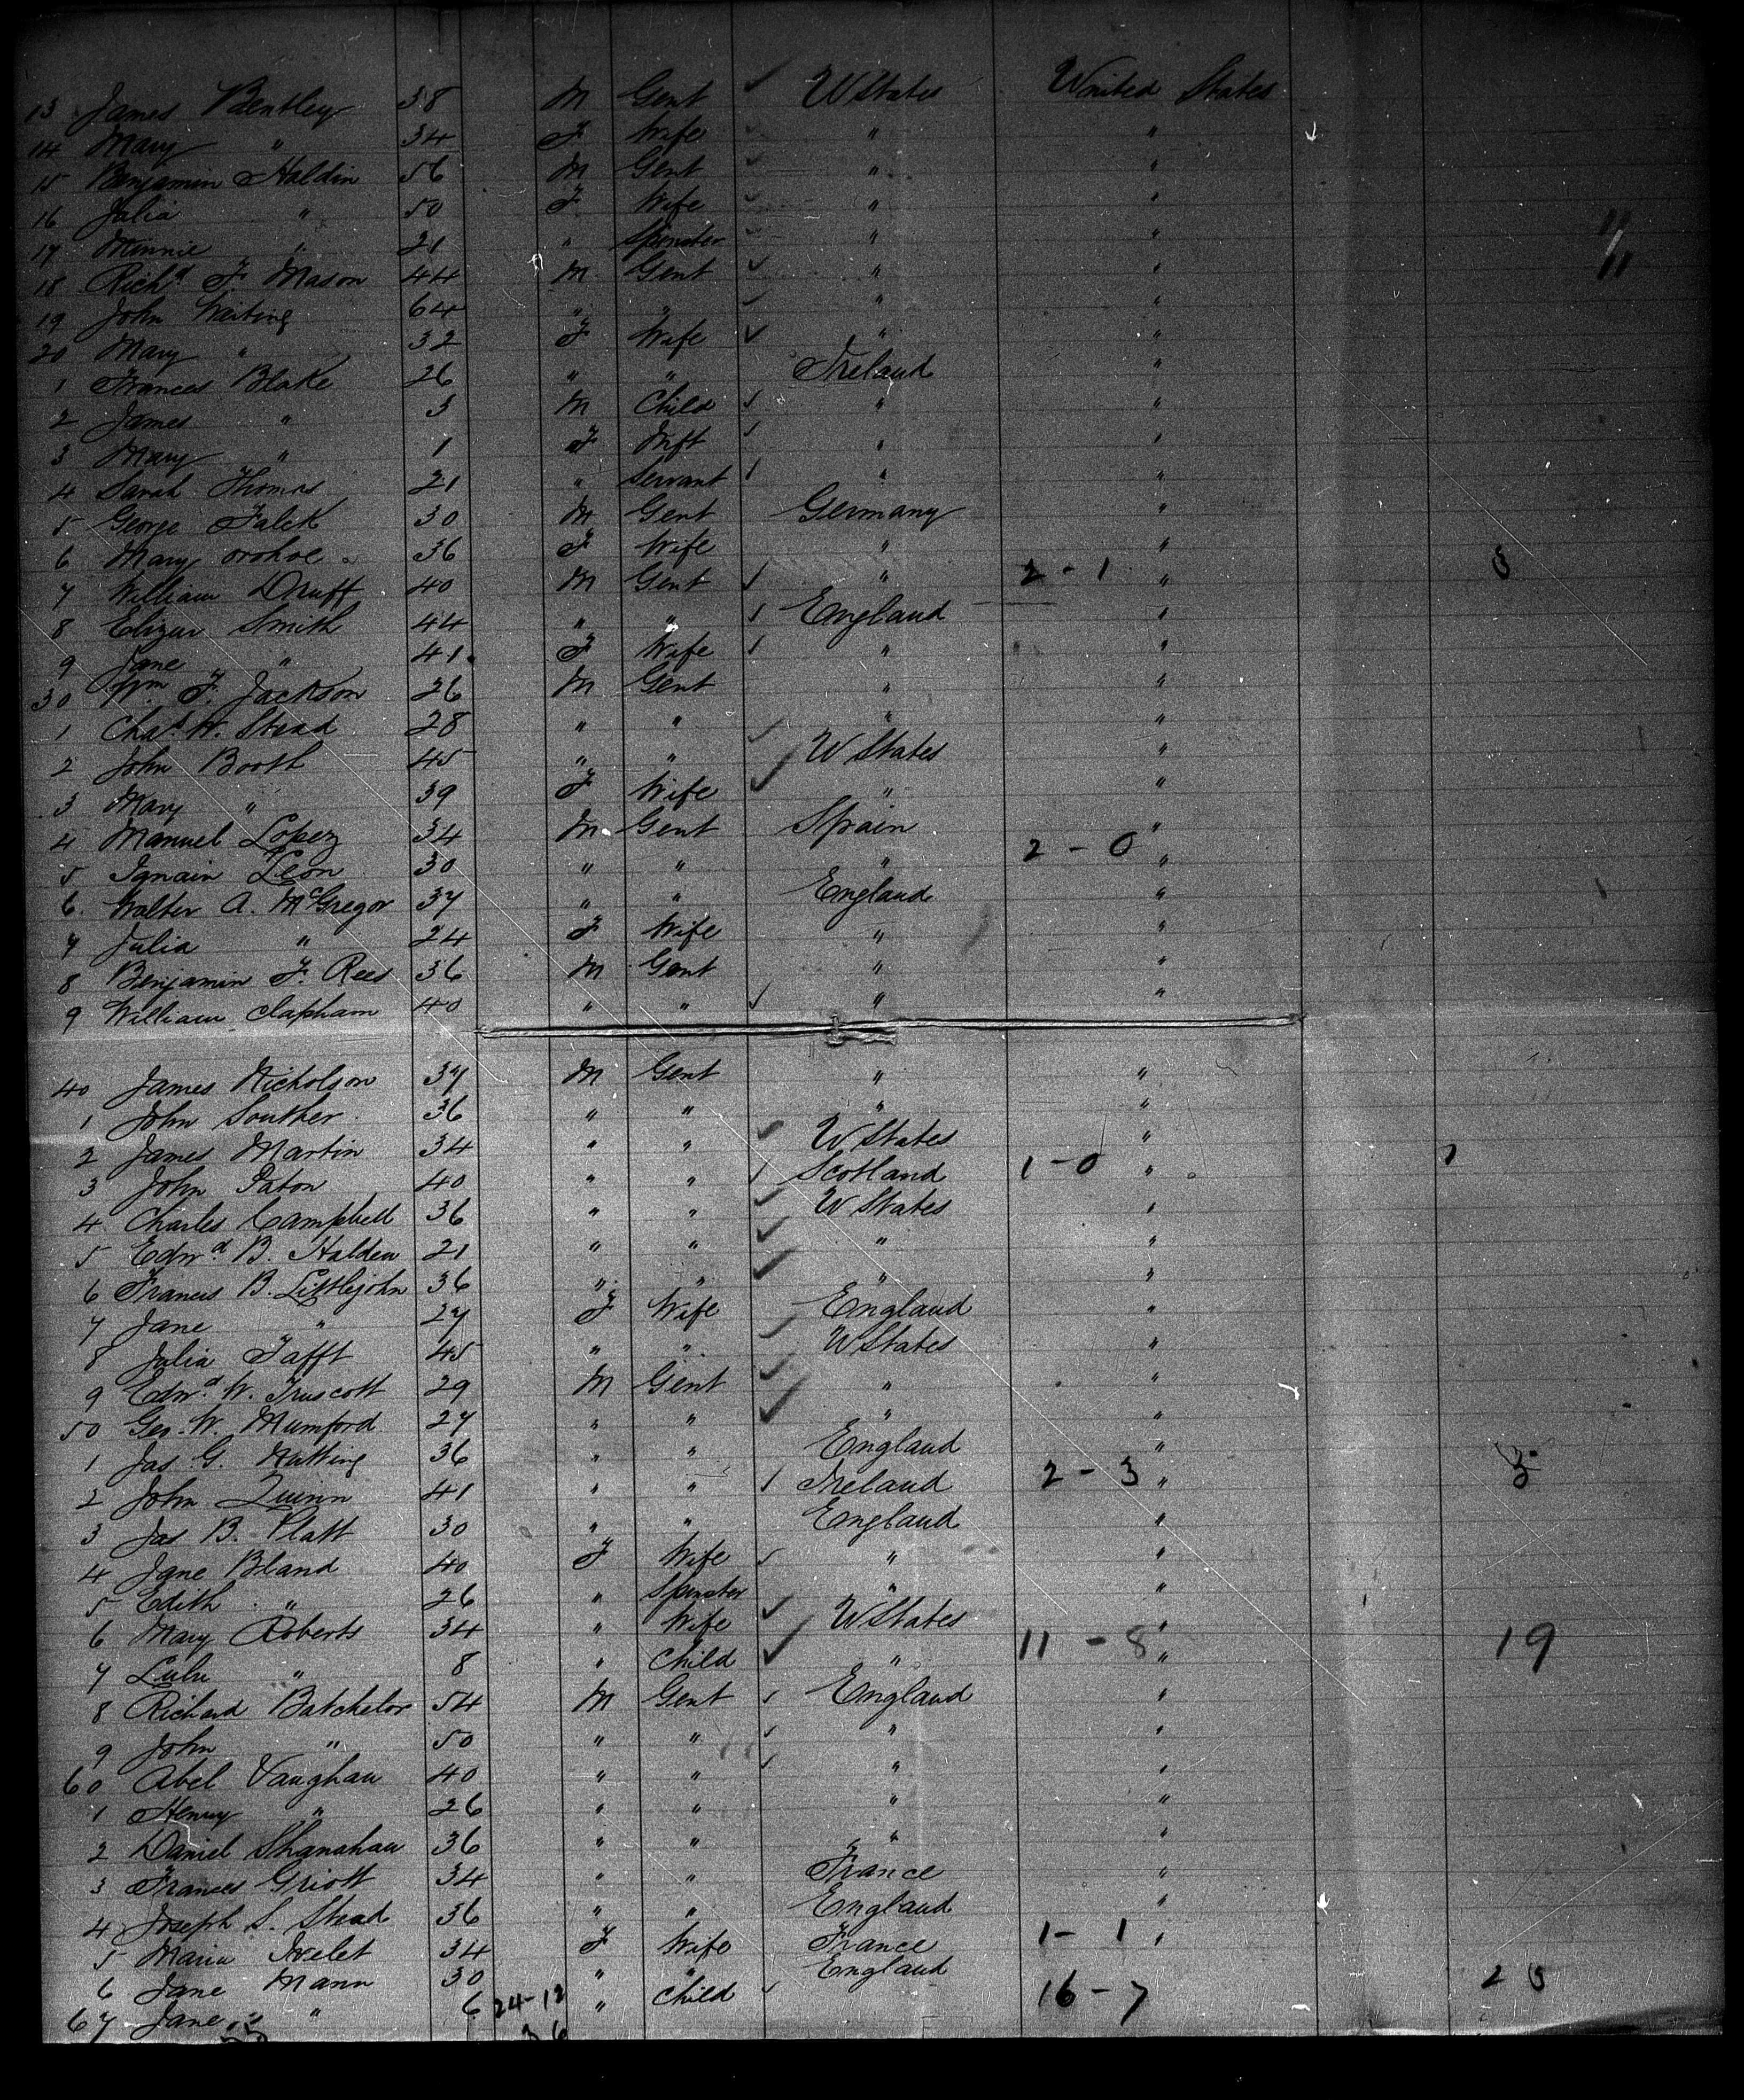 13 James Bentley 38 M Gent ✓ U States United States
14 Mary " 34 F Wife ✓ " "
15 Benjamin Haldin 56 M Gent ✓ " "
16 Julia " 50 F Wife ✓ " "
17 Minnie " 21 " Spinster ✓ " "
18 Richd F Mason 44 M Gent ✓ " "
19 John Waiting 64 " " ✓ " "
20 Mary " 32 F Wife ✓ " "
1 Frances Blake 26 " " Ireland "
2 James " 3 M Child ✓ " "
3 Mary " 1 F Inft ✓ " "
4 Sarah Thomas 21 " Servant ✓ " "
5 George Falck 30 M Gent Germany "
6 Mary 36 F Wife " "
7 William Druff 40 M Gent ✓ " 2 - 1 " 3
8 Elizur Smith 44 " " ✓ England "
9 Jane " 41 F Wife ✓ " "
30 Wm F. Jackson 26 M Gent " "
1 Chas W. Stead 28 " " " "
2 John Booth 45 " " ✓ U States "
3 Mary " 39 F Wife ✓ " "
4 Manuel Lopez 34 M Gent Spain "
5 Leon 30 " " " 2 - 0 "
6 Walter A. McGregor 37 " " England "
7 Julia " 24 F Wife " "
8 Benjamin F. Rees 36 M Gent " "
9 William Clapham 40 " " ✓ " "
40 James Nicholson 37 M Gent " "
1 John Souther 36 " " " "
2 James Martin 34 " " ✓ U States "
3 John Paton 40 " " ✓ Scotland 1 - 0 " 1
4 Charles Campbell 36 " " ✓ U States "
5 Edwd B. Halden 21 " " ✓ " "
6 Francis B. Littlejohn 36 " " ✓ " "
7 Jane " 27 F Wife England "
8 Julia Tafft 45 " " ✓ U States "
9 Edwd W. Truscott 29 M Gent ✓ " "
50 Geo. W. Mumford 27 " " ✓ " "
1 Jas G. Nutting 36 " " England "
2 John Quinn 41 " " ✓ Ireland 2 - 3 "
3 Jas B. Platt 30 " " England "
4 Jane Bland 40 F Wife ✓ " "
5 Edith " 26 " Spinster " "
6 Mary Roberts 34 " Wife ✓ U States "
7 Lulu " 8 " Child ✓ " 11 - 8 " 19
8 Richard Batchelor 54 M Gent ✓ England "
9 John " 50 " " ✓ " "
60 Abel Vaughan 40 " " ✓ " "
1 Henry " 26 " " " "
2 Daniel Shanahan 36 " " " "
3 Frances Griott 34 " " France "
4 Joseph S. Stead 36 " " England "
5 Maria 34 F Wife France 1 - 1 "
6 Jane Mann 30 " " England
67 Jane " 6 24-12 " Child ✓ 16 - 7
36